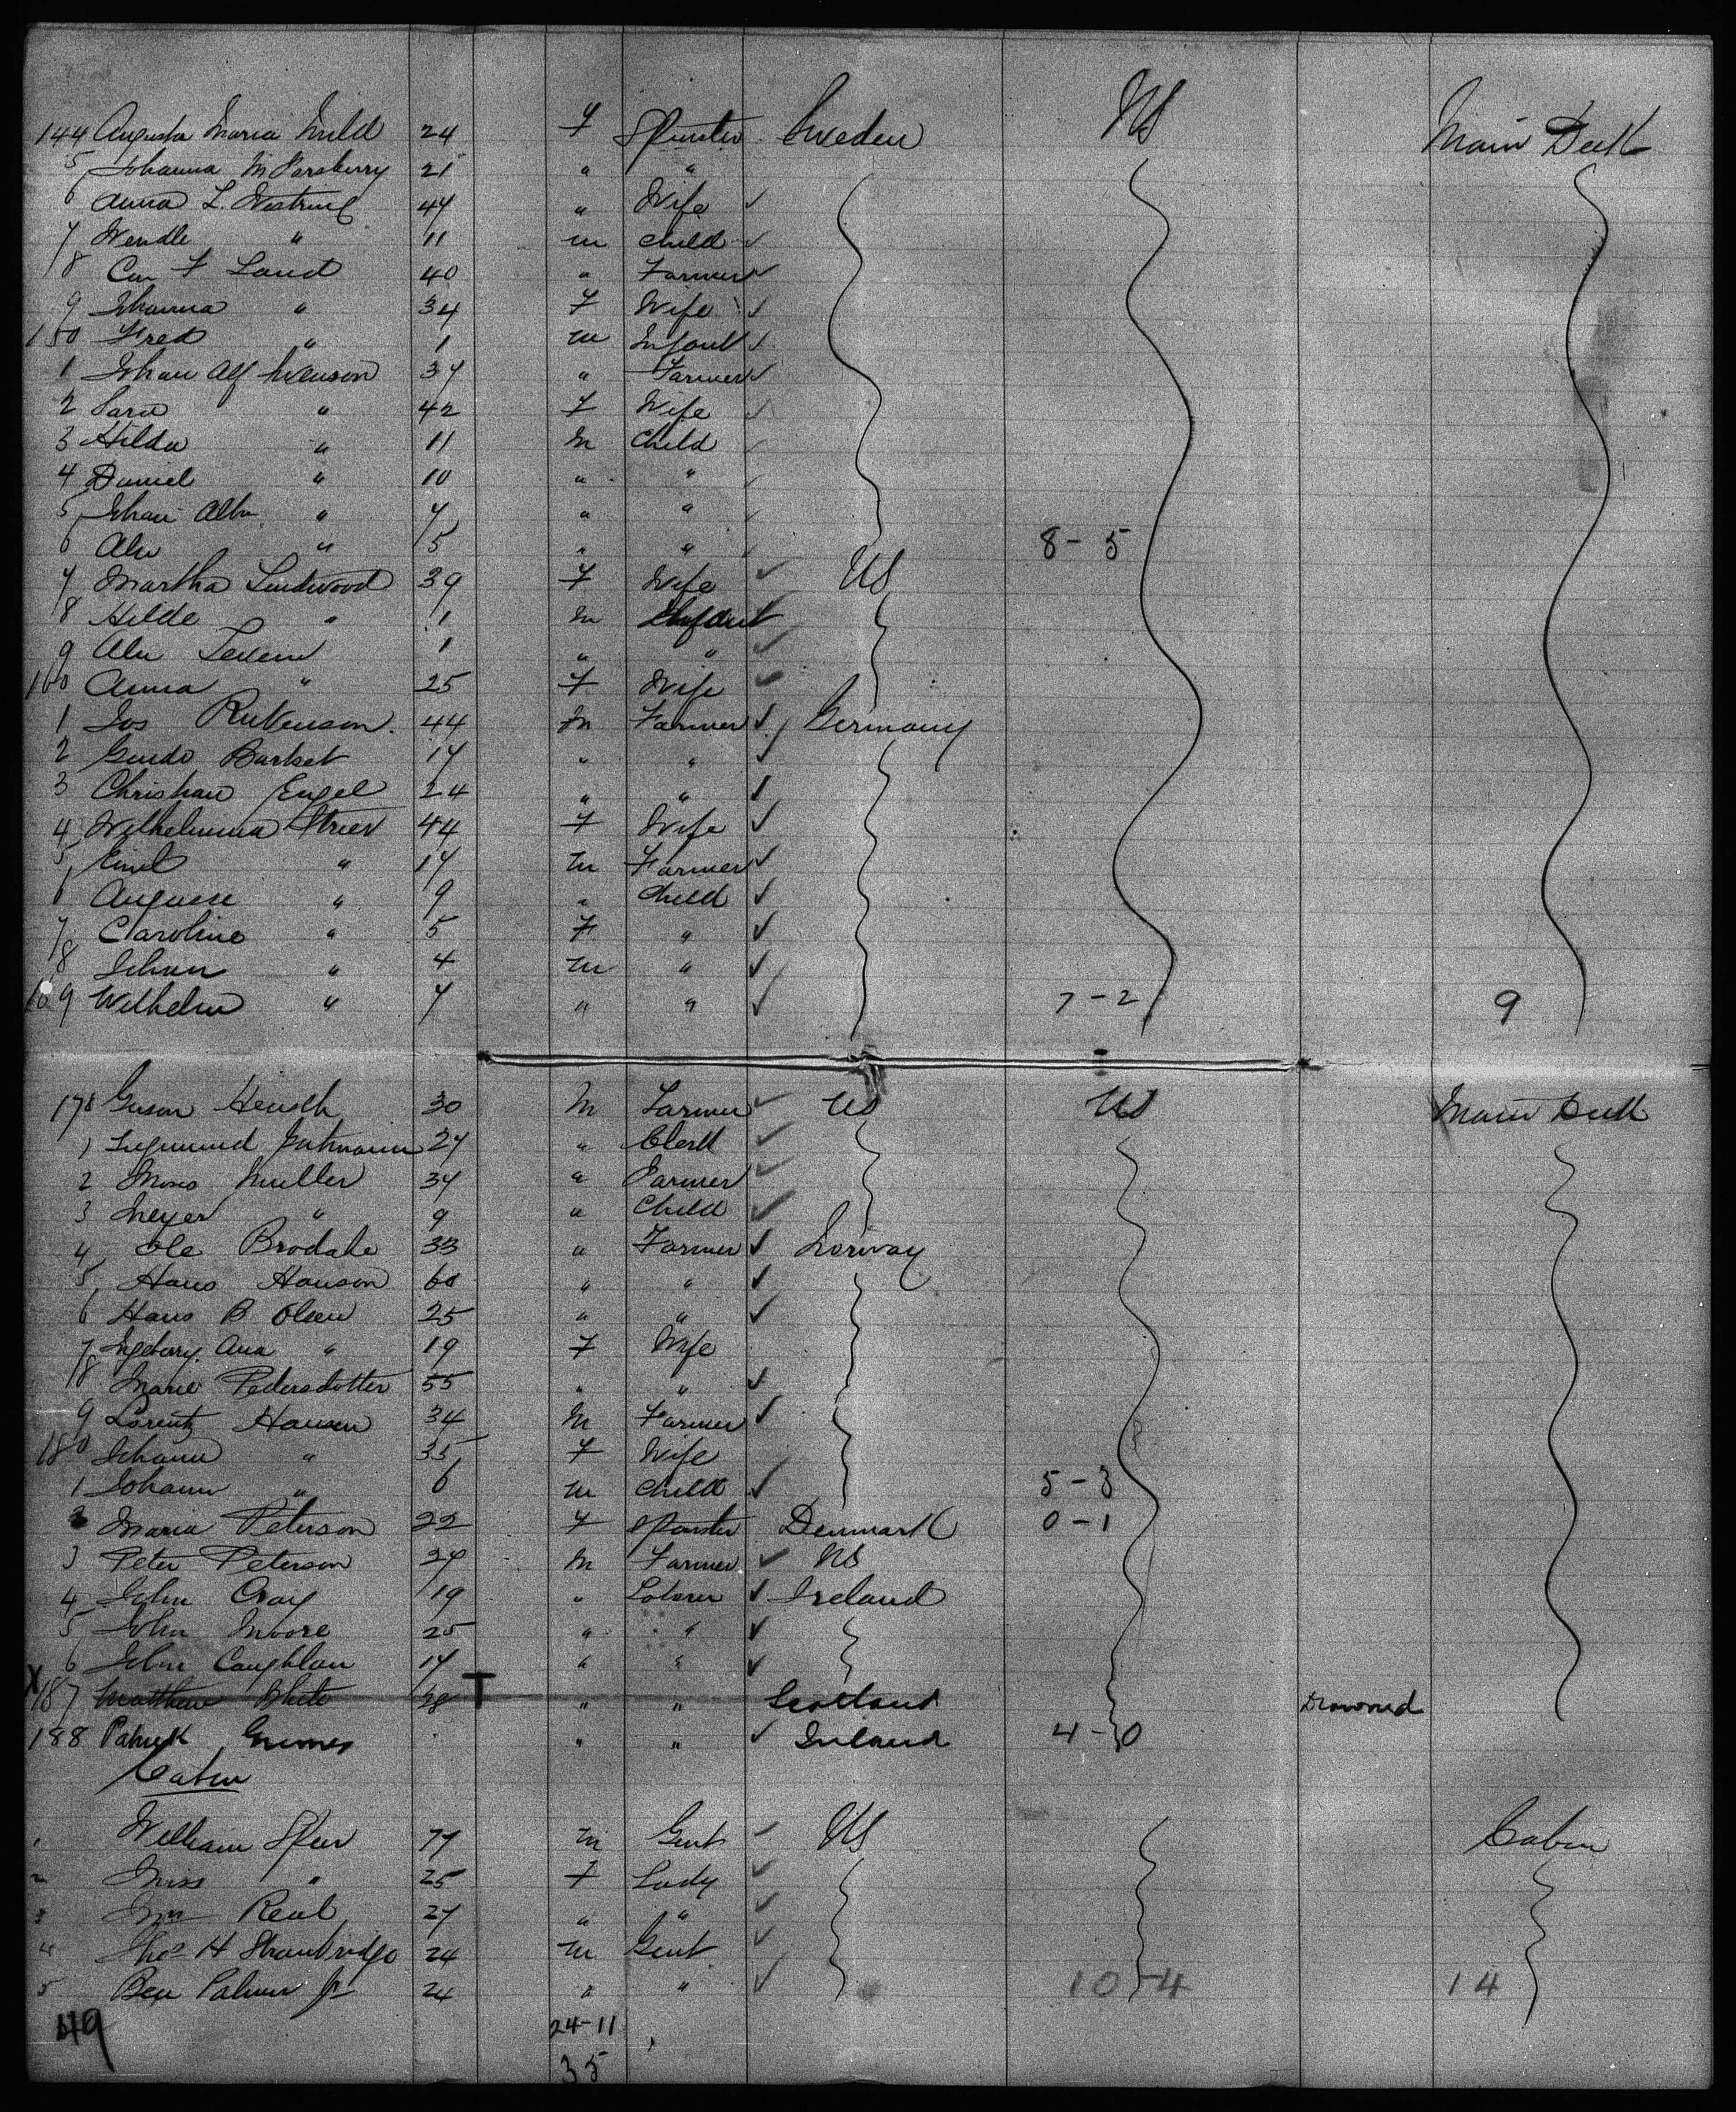 144 Augusta Maria 24 F Spinster Sweden US Main Deck
5 Johanna M 21 " "
6 Anna L. 44 " Wife
7 Wendle " 11 m Child
8 F Land 40 " Farmer
9 Johanna " 34 F Wife
150 Fred " 1 m Infant
1 Johan Alf Swenson 37 " Farmer
2 Sara " 42 F Wife
3 Hilda " 11 m Child
4 Daniel " 10 " "
5 Johan Alb " 7 " "
6 " 5 " " 8-5
7 Martha Lindwood 39 F Wife US
8 Hilde " 1 m Infant
9 1 " "
160 Anna " 25 F Wife
1 Jos 44 m Farmer Germany
2 Guido 17 " "
3 Christian Engel 24 " "
4 Wilhelmina 44 F Wife
5 Emil " 17 m Farmer
6 " 9 " Child
7 Caroline " 5 F "
8 Johan " 4 m "
169 Wilhelm " 7 " " 7-2 9
170 30 m Farmer US US Main Deck
1 27 " Clerk
2 Moses Muller 37 " Farmer
3 Meyer " 9 " Child
4 Ole Brodahe 33 " Farmer Norway
5 Hans Hanson 60 " "
6 Hans B Olsen 25 " "
7 Ingeborg Ana " 19 F Wife
8 Marie Pedersdotter 55 " "
9 Lorentz Hansen 34 m Farmer
180 " 35 F Wife
1 Johann " 6 m Child 5-3
2 Maria Peterson 22 F Spinster Denmark 0-1
3 Peter Peterson 27 m Farmer US
4 John 19 " Laborer Ireland
5 John Moore 25 " "
6 John Coughlan 17 " "
X 187 Matthew White 28 T " " Scotland Drowned
188 Patrick Grimes " " Ireland 4-0
Cabin
1 William 77 m Gent US Cabin
2 Miss " 25 F Lady
3 Mrs 27 " "
4 Thos H Strawbridge 24 m Gent
5 Ben Palmer Jr 24 " " 10-4 14
49 24-11
35